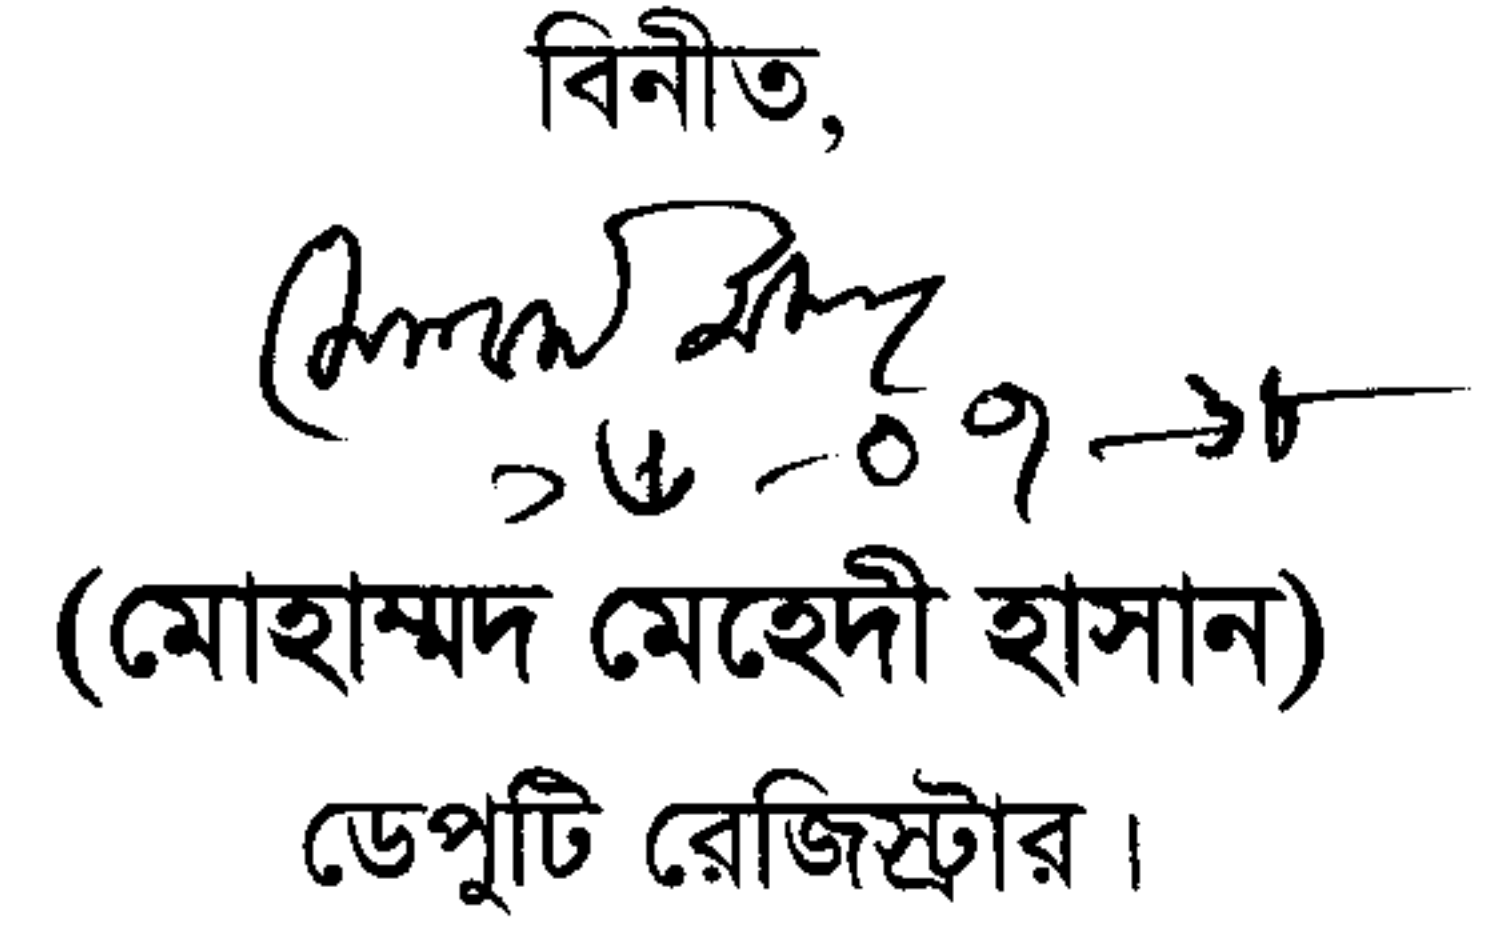 বিনীত,
১৬-০৭-১৮
(মোহাম্মদ মেহেদী হাসান)
ডেপুটি রেজিস্ট্রার।